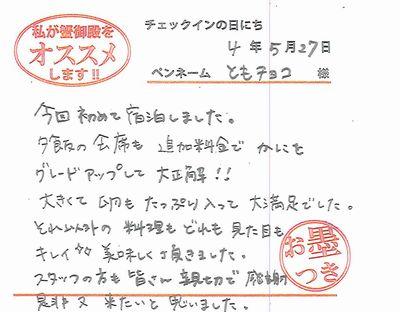 私が蟹御殿を
オススメ
します!!
チェックインの日にち
4年5月27日
ペンネーム ともチョコ 様
今回初めて宿泊しました。
夕飯の会席も追加料金でかにを
グレードアップして大正解!!
大きくて卵もたっぷり入って大満足でした。
それ以外の料理もどれも見た目も
キレイで美味しく頂きました。
スタッフの方も皆さん親切で感謝
是非又来たいと思いました。
お墨
つき